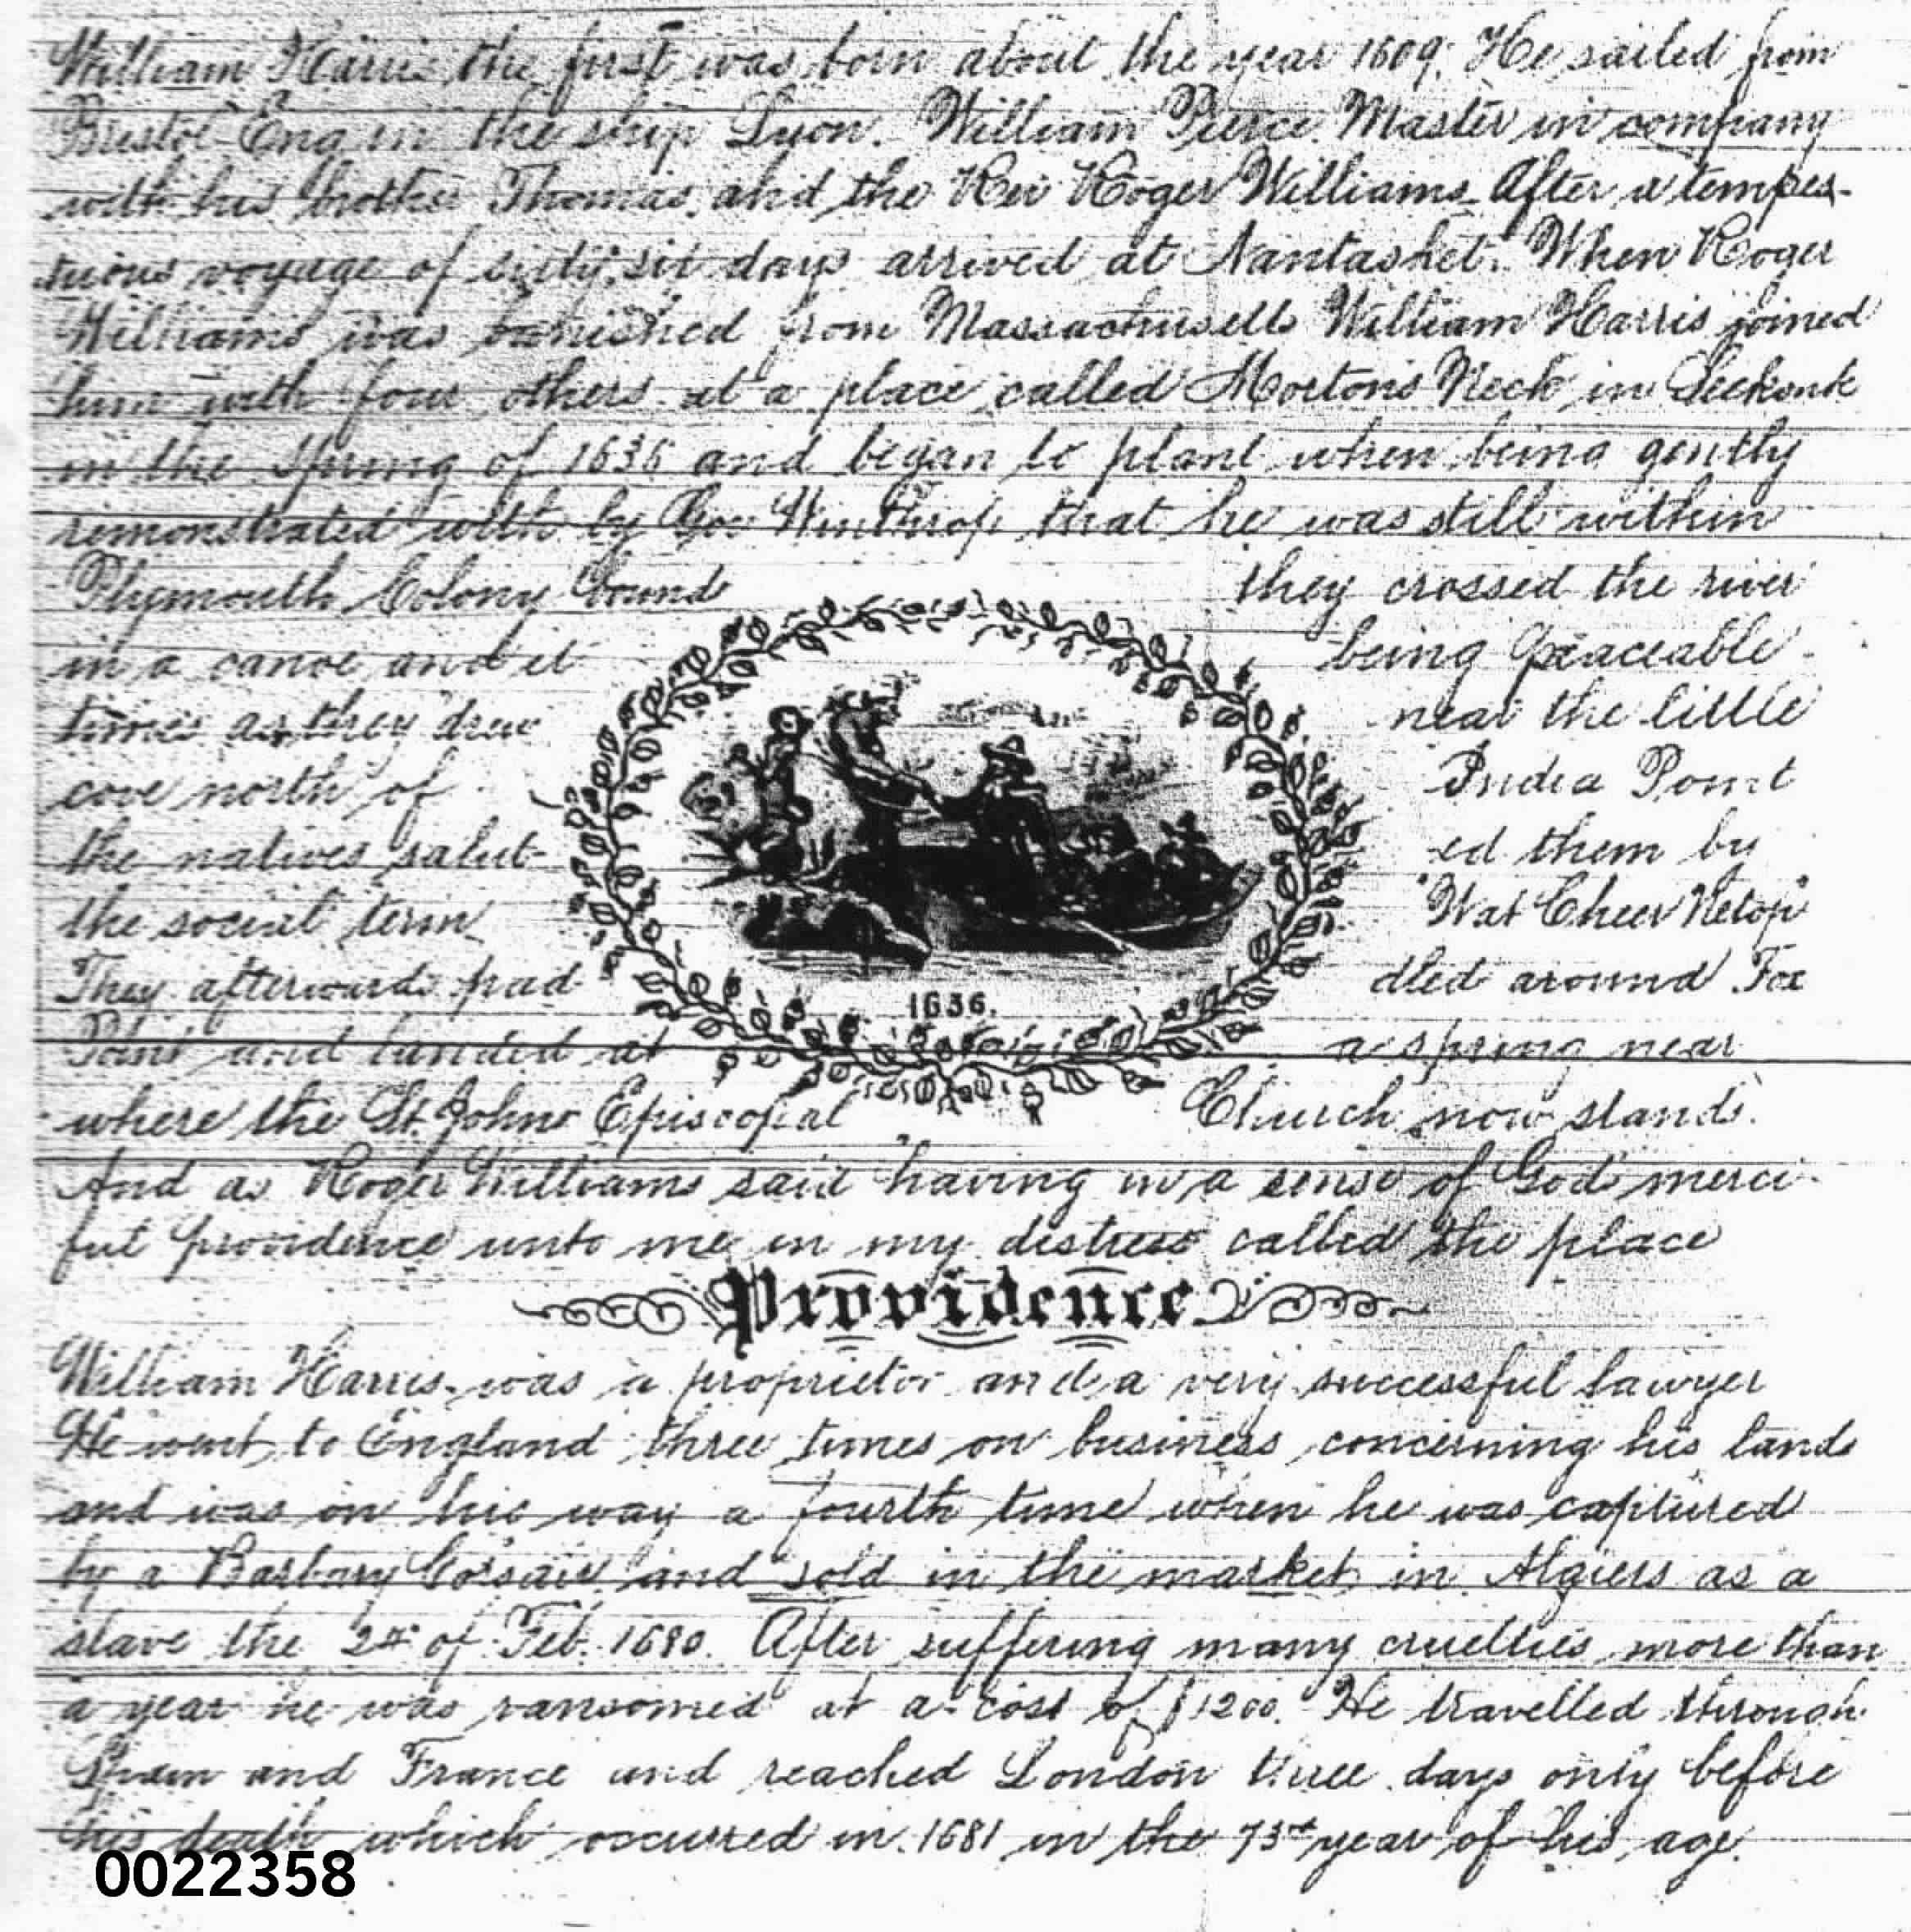 William Harris the first was born about the year 1609. He sailed from
Bristol Eng in the ship Lyon. William Pierce Master in company
with his brother Thomas, and the Rev Roger Williams. After a tempes-
tuous voyage of sixty six days arrived at Nantasket. When Roger
Williams was banished from Massachusetts William Harris joined
him with four others at a place called Mortons Neck in Seekonk
in the Spring of 1636 and began to plant when being gently
remonstrated with by Gov Winthrop that he was still within
Plymouth Colony bounds they crossed the river
in a canoe and it being peaceable
times as they drew near the little
cove north of India Point
the natives salut- ed them by
the social term "Wat Cheer Netop"
They afterwards pad- dled around Fox
1636.
Point and landed at a spring near
where the St. Johns Episcopal Church now stands.
And as Roger Williams said having in a sense of Gods merci-
ful providence unto me in my distress called the place
Providence
William Harris was a proprietor and a very successful lawyer
He went to England three times on business concerning his lands
and was on his way a fourth time when he was captured
by a Barbary Corsair and sold in the market in Algiers as a
slave the of Feb. 1680. After suffering many cruelties more than
a year he was ransomed at a cost of $1200. He travelled through
Spain and France and reached London three days only before
his death which occurred in 1681 in the 73rd year of his age.
0022358